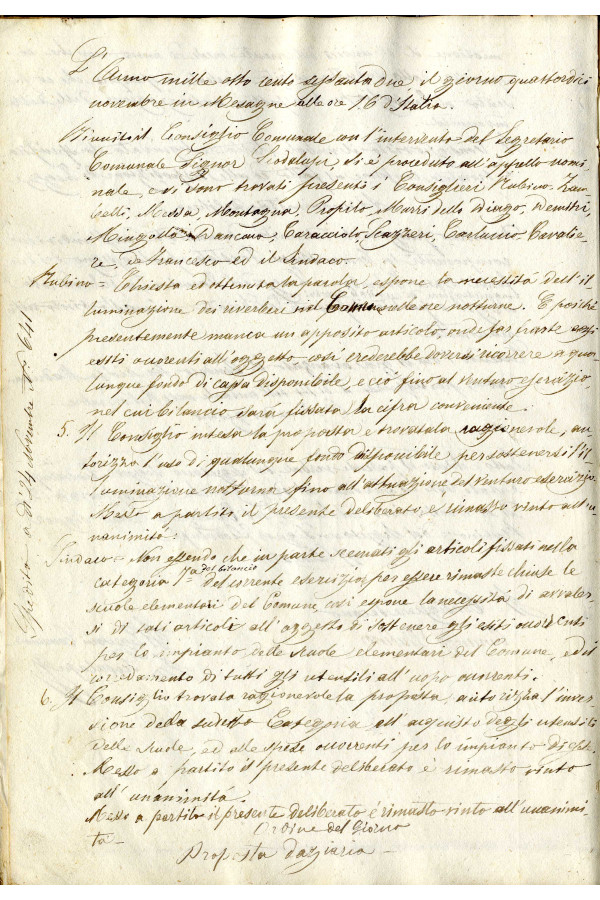 L'Anno mille otto cento settanta due il giorno quattordici
novembre in Mesagne alle ore 16 d'Italia.
Riunitosi il Consiglio Comunale con l'intervento del Segretario
Comunale Signor Scodalupi, si è proceduto all'appello nomi
nale, e si sono trovati presenti i Consiglieri Rubino, Zam
belli, Messa, Montagna, Profilo, Murri dello Diago, Demitri,
Mingolla, Pancaro, Caracciolo, Scazzeri, Carluccio, Cavalie
re, de Francesco ed il Sindaco.
Rubino = Chiesta ed ottenuta la parola, espone la necessità dell'il
luminazione dei riverberi nel Comune nelle ore notturne. E poiché
presentemente manca un apposito articolo, onde far fronte agli
esiti occorrenti all'oggetto così crederebbe doversi ricorrere a qua
lunque fondo di cassa disponibile, e ciò fino al venturo esercizio,
nel cui bilancio sarà fissata la cifra conveniente.
5. Il Consiglio intesa la proposta e trovatala ragionevole, au
torizza l'uso di qualunque fondo disponibile per sostenersi l'il
luminazione notturna fino all'attuazione del venturo esercizio.
Messo a partito il presente deliberato, è rimasto vinto all'u
nanimità:
Sindaco = Non essendo che in parte scemati gli articoli fissati nella
categoria 7a del bilancio del corrente esercizio, per essere rimaste chiuse le
scuole elementari del Comune, così espone la necessità di avvaler
si di tali articoli all'oggetto di sostenere gli esiti occorrenti
per lo impianto delle Scuole elementari del Comune, ed il
corredamento di tutti gli utensili all'uopo occorrenti.
6. Il Consiglio trovata ragionevole la proposta, autorizza l'inver
sione della sudetta Categoria all'acquisto degli utensili
delle Scuole, ed alle spese occorrenti per lo impianto di esse.
Messo a partito il presente deliberato è rimasto vinto
all'unanimità.
Messo a partito il presente deliberato è rimasto vinto all'unanimi
tà.
Ordine del Giorno
Proposta daziaria
Spedito a dì 24 Novembre N° 641